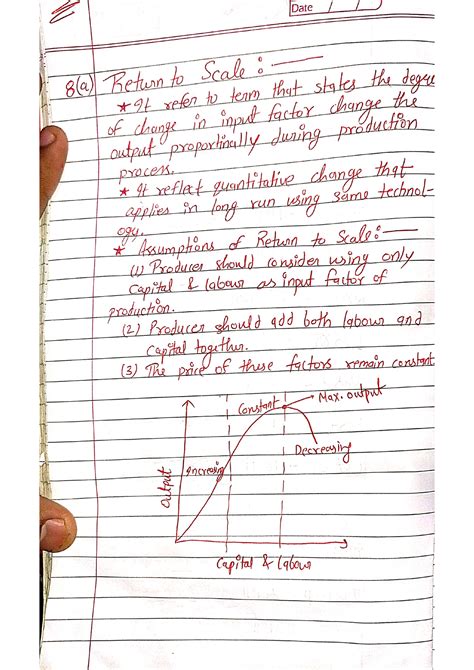 Date / /
8(a) Return to Scale :—
★ It refer to term that states the degree
of change in input factor change the
output proportinally during production
process.
★ It reflect quantitative change that
applies in long run using same technol-
ogy.
★ Assumptions of Return to Scale:—
(1) Producer should consider using only
Capital & labour as input factor of
production.
(2) Producer should add both labour and
Capital together.
(3) The price of these factors remain constant
Constant
Max. output
Decreasing
Increasing
Output
Capital & labour